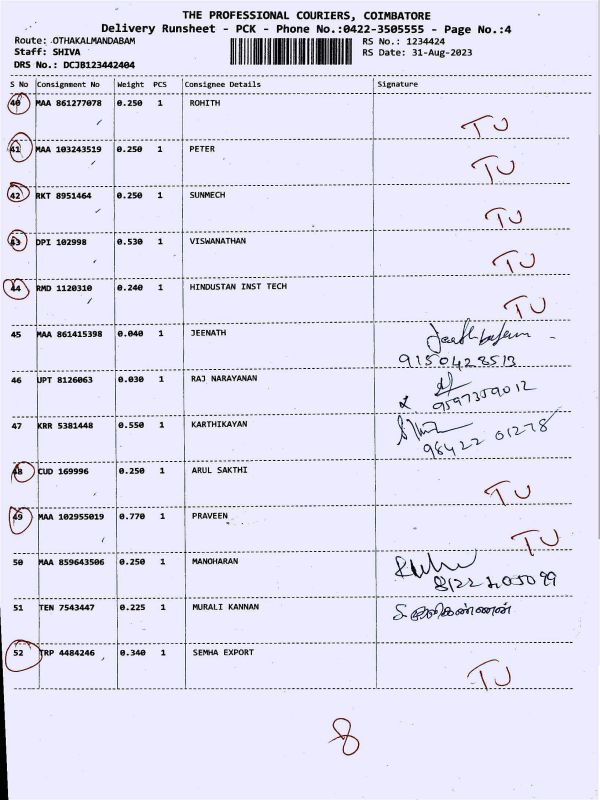 THE PROFESSIONAL COURIERS, COIMBATORE
Delivery Runsheet - PCK - Phone No.:0422-3505555 - Page No.:4
Route: OTHAKALMANDABAM RS No.: 1234424
Staff: SHIVA RS Date: 31-Aug-2023
DRS No.: DCJB123442404
S No Consignment No Weight PCS Consignee Details Signature
40 MAA 861277078 0.250 1 ROHITH
TU
41 MAA 103243519 0.250 1 PETER
TU
42 RKT 8951464 0.250 1 SUNMECH
TU
43 DPI 102998 0.530 1 VISWANATHAN
TU
44 RMD 1120310 0.240 1 HINDUSTAN INST TECH
TU
45 MAA 861415398 0.040 1 JEENATH
9150428513
46 UPT 8126063 0.030 1 RAJ NARAYANAN
9597359012
47 KRR 5381448 0.550 1 KARTHIKAYAN
98422 01278
48 CUD 169996 0.250 1 ARUL SAKTHI
TU
49 MAA 102955019 0.770 1 PRAVEEN
TU
50 MAA 859643506 0.250 1 MANOHARAN
51 TEN 7543447 0.225 1 MURALI KANNAN
52 TRP 4484246 0.340 1 SEMHA EXPORT
TU
8